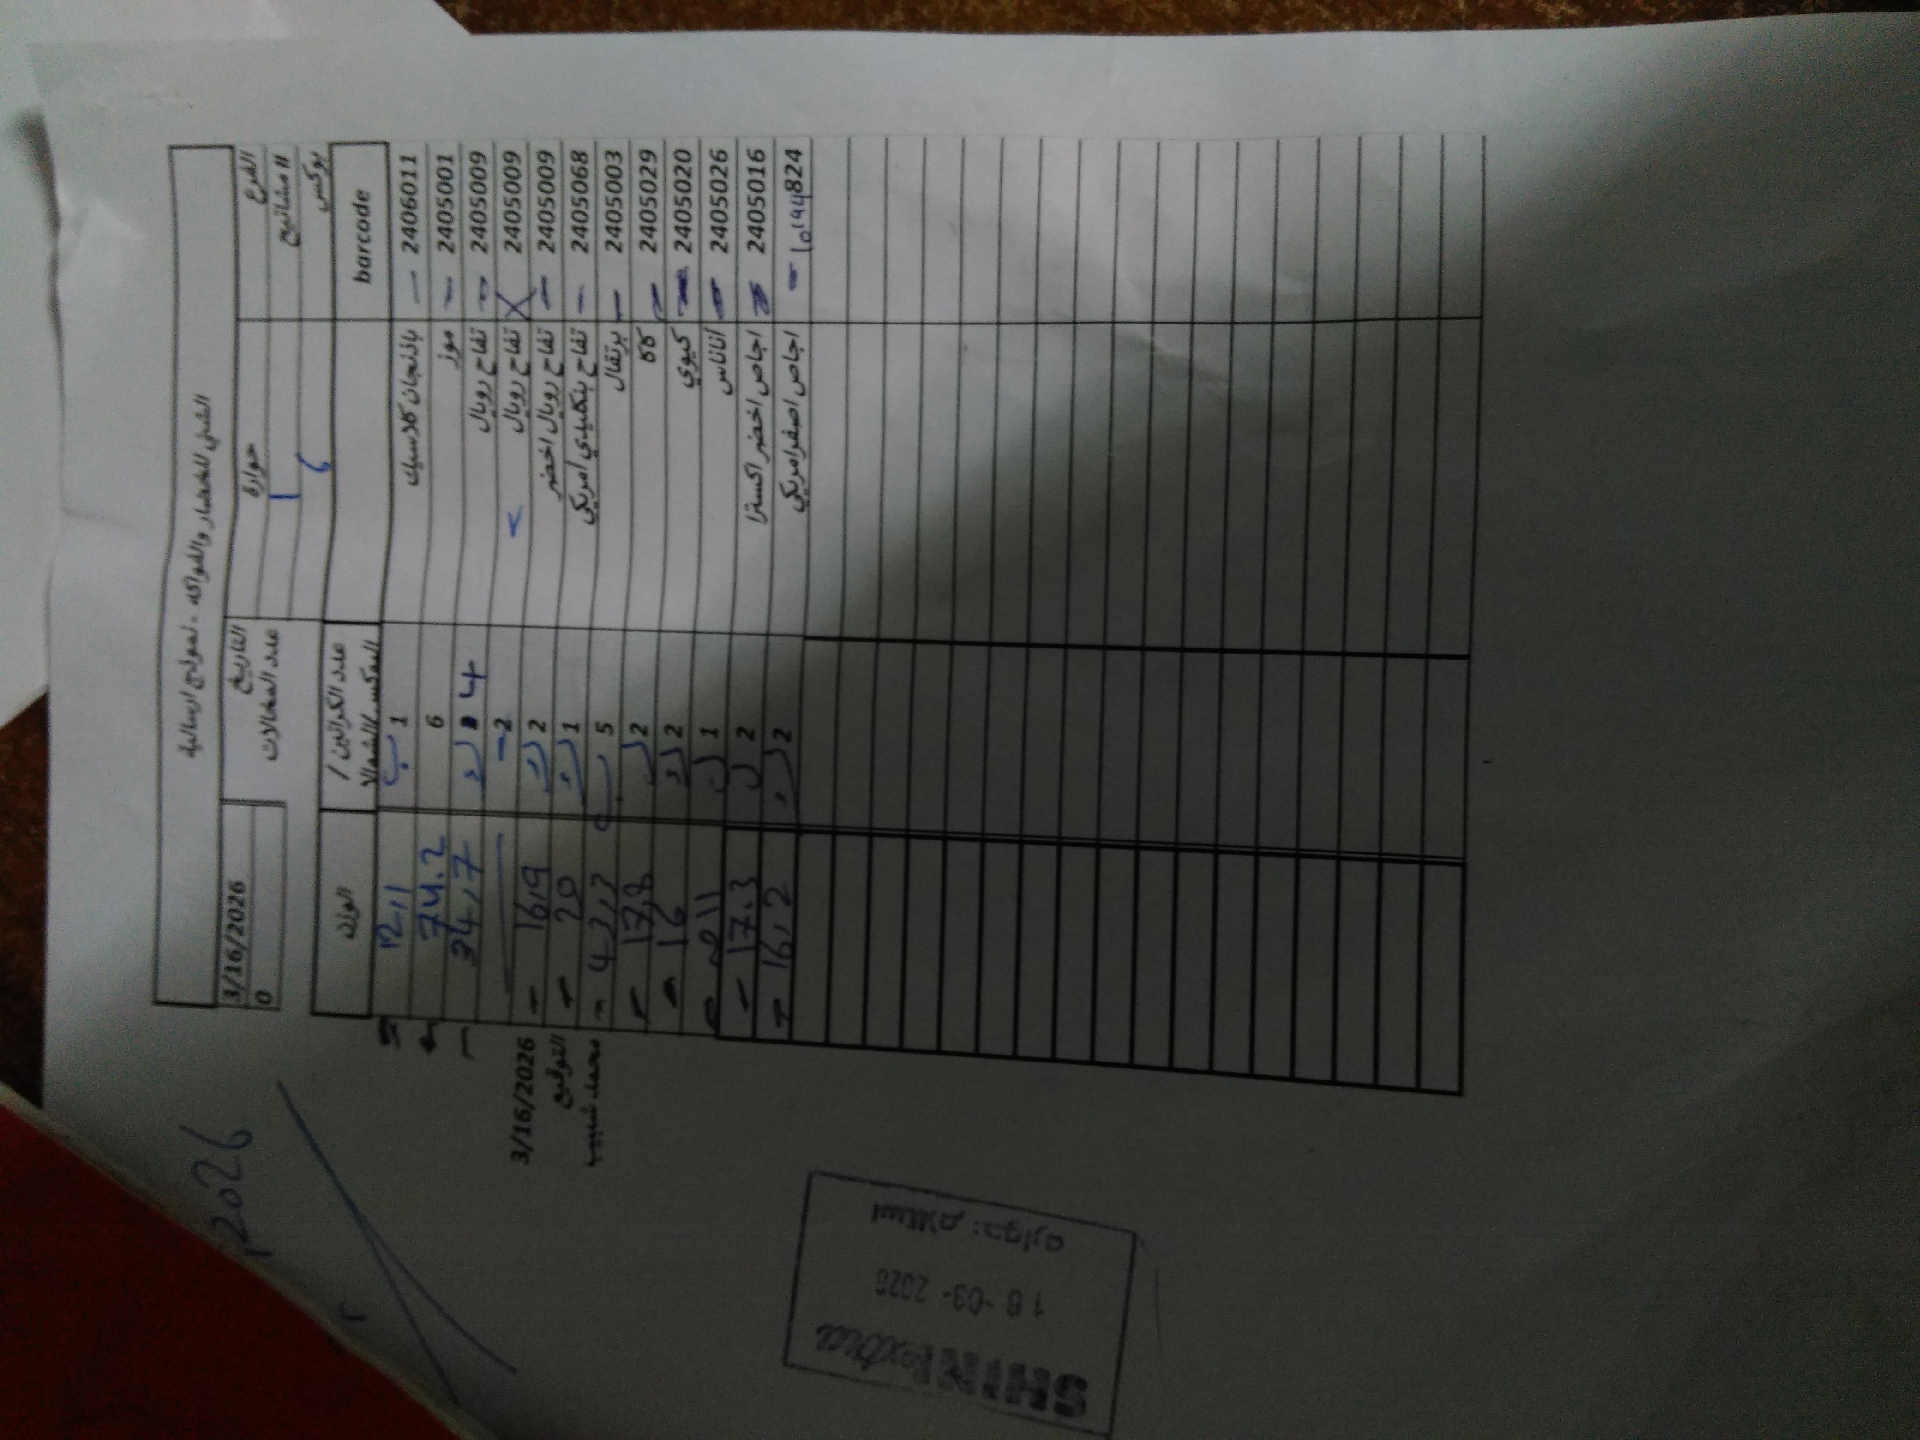 الشني للخضار والفواكه - نموذج ارسالية
الفرع حوارة التاريخ 3/16/2026
# مشاتيح 1 عدد المشالات 0
بوكس 6
barcode عدد الكراتين / البوكس/الشوالا الوزن
2406011 باذنجان كلاسيك 1 ب 12.1
2405001 موز 6 74.2
2405009 تفاح رويال 4 34,7
2405009 تفاح رويال 2
2405009 تفاح رويال اخضر 2 16,9
2405068 تفاح بنكليدي امريكي 1 20
2405003 برتقال 5 43,3
2405029 كاكا 2 17,8
2405020 كيوي 2 16
2405026 اناناس 1 11
2405016 اجاص اخضر اكسترا 2 17.3
824 اجاص اصفر امريكي 2 16,2
3/16/2026
التوقيع
محمد شبيب
2026
استلام : حواره
16 -03- 2026
SHINI extra